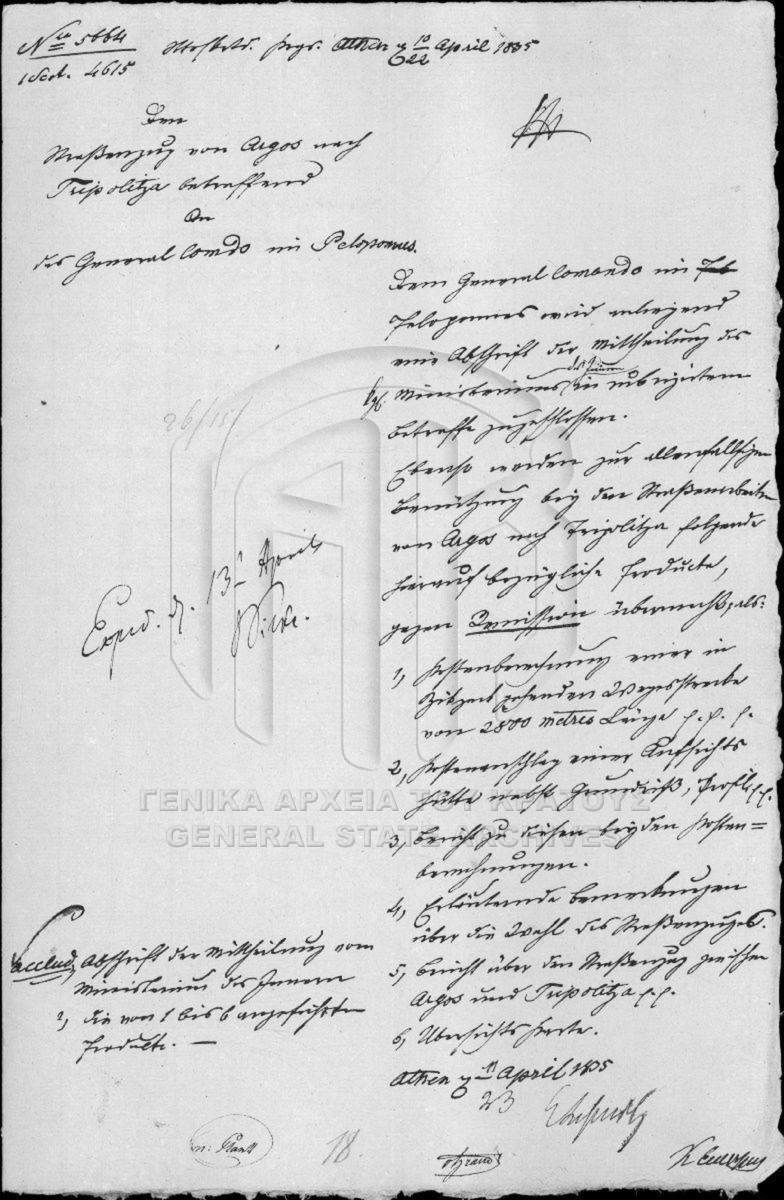 Nro 5664
1 Sect. 4615
Athen 10/22 April 1835
Den
Straßenzug von Argos nach
Tripolitza betreffend
An
das General Comdo im Peloponnes.
Dem General Comando im
Peloponnes wird anliegend
eine Abschrift der Mittheilung des
kgl. Ministeriums des Innern in rubrizirtem
Betreffe zugeschlossen.
Ebenso werden zur allenfallsigen
Benützung bey den Straßenarbeiten
von Argos nach Tripolitza folgende
hierauf bezügliche Producte,
gegen Remission übermacht, als:
1, Kostenberechnung einer in
gehenden Wegesstrecke
von 2800 metres Länge p. p. p.
2, Kostenanschlag einer Aufsichts
hütte nebst Grundriß, Profil p.p.
3, Bericht zu diesen beyden Kosten=
berechnungen.
4, Erläuternde Bemerkungen
über die Wahl des Straßenzuges.
5, Bericht über den Straßenzug zwischen
Argos und Tripolitza p.p.
6, Übersichts Karte.
Athen 11/23 April 1835
26/15
Exped. d. 13 April
Abschrift der Mittheilung vom
Ministerium des Innern
2, die von 1 bis 6 angeführten
Producte. —
18.
ΓΕΝΙΚΑ ΑΡΧΕΙΑ ΤΟΥ ΚΡΑΤΟΥΣ
GENERAL STATE ARCHIVES